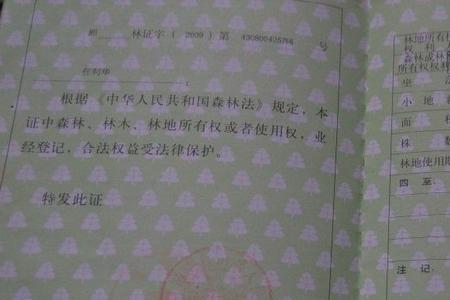 林证字（2009）第 430800425766 号
根据《中华人民共和国森林法》规定，本
证中森林、林木、林地所有权或者使用权，业
经登记，合法权益受法律保护。
特发此证
林地所有权
权利
森林或林
所有权权利
小地
面积
株数
林地使用期
四至
注记